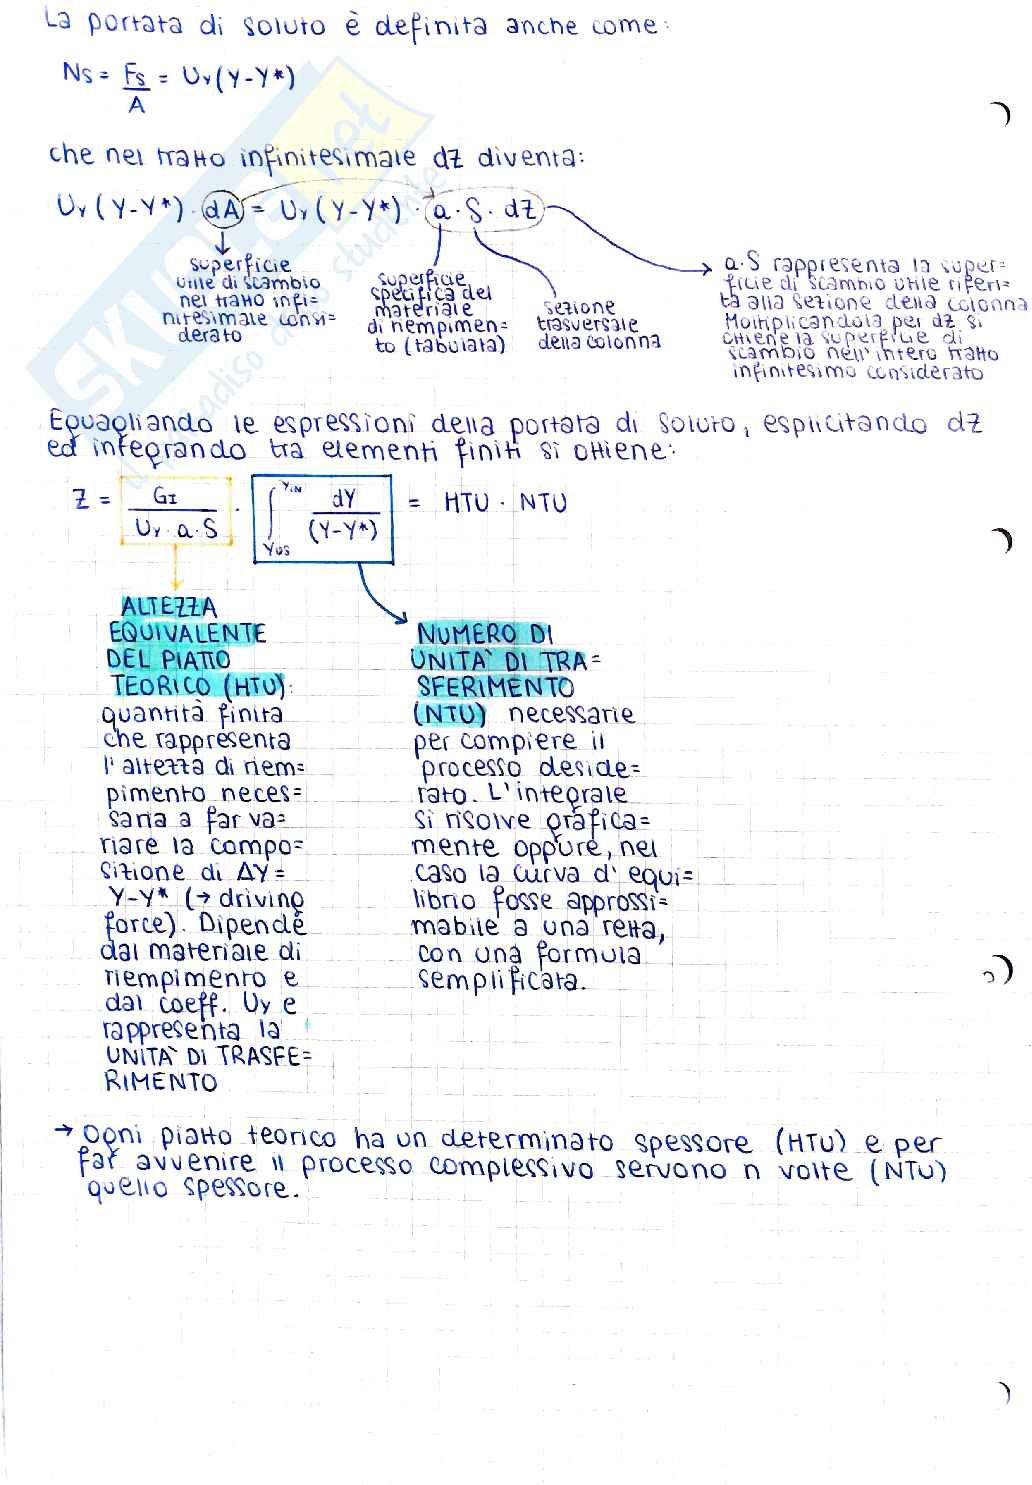 La portata di soluto è definita anche come:
Ns = Fs/A = Uy(Y-Y*)
che nel tratto infinitesimale dZ diventa:
Uy(Y-Y*)·dA = Uy(Y-Y*)·a·S·dZ
superficie
utile di scambio
nel tratto infi=
nitesimale consi=
derato
superficie
specifica del
materiale
di riempimen=
to (tabulata)
sezione
trasversale
della colonna
a·S rappresenta la super=
ficie di scambio utile riferi=
ta alla sezione della colonna
Moltiplicandola per dZ si
ottiene la superficie di
scambio nell'intero tratto
infinitesimo considerato
Eguagliando le espressioni della portata di soluto, esplicitando dZ
ed integrando tra elementi finiti si ottiene:
Z = GI/(Uy·a·S) · ∫ YUS YIN dY/(Y-Y*) = HTU · NTU
ALTEZZA
EQUIVALENTE
DEL PIATTO
TEORICO (HTU):
quantità finita
che rappresenta
l'altezza di riem=
pimento neces=
saria a far va=
riare la compo=
sizione di ΔY=
Y-Y* (→ driving
force). Dipende
dal materiale di
riempimento e
dal coeff. Uy e
rappresenta la
UNITA` DI TRASFE=
RIMENTO
NUMERO DI
UNITA` DI TRA=
SFERIMENTO
(NTU) necessarie
per compiere il
processo deside=
rato. L'integrale
si risolve grafica=
mente oppure, nel
caso la curva d'equi=
librio fosse approssi=
mabile a una retta,
con una formula
semplificata.
→ Ogni piatto teorico ha un determinato spessore (HTU) e per
far avvenire il processo complessivo servono n volte (NTU)
quello spessore.
SKUOLA.net
il paradiso dello studente